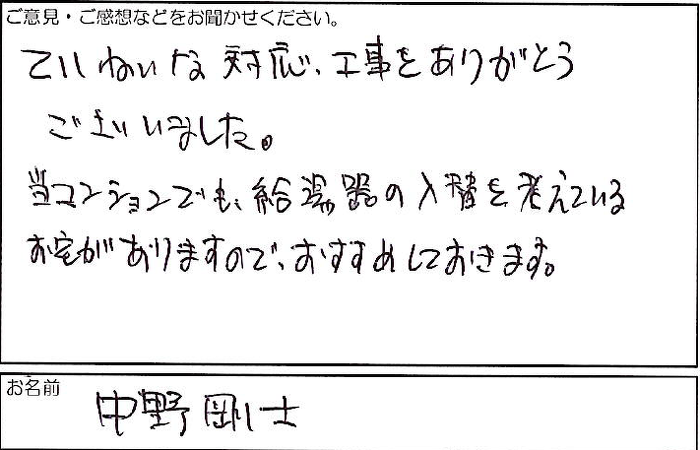 ご意見・ご感想などをお聞かせください。
ていねいな対応、工事をありがとう
ございました。
当コンションでも、給湯器の入替を考えている
お宅がありますので、おすすめしておきます。
お名前
中野剛士